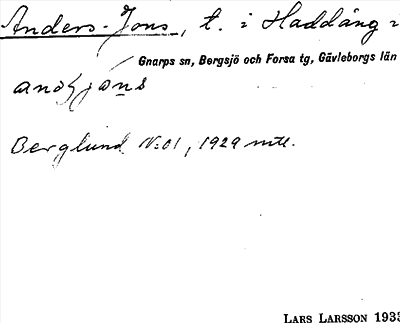 Anders-Jons, t. i Haddäng i
Gnarps sn, Bergsjö och Forsa tg, Gävleborgs län
Berglund N:01, 1929 mtl.
LARS LARSSON 1933